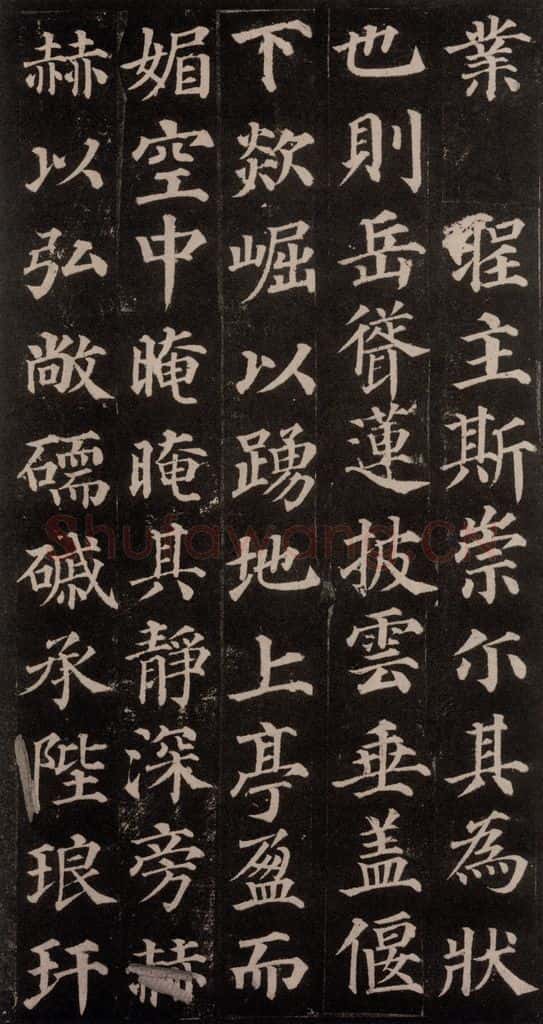 業 聖主斯崇尒其為狀
也則岳聳蓮披雲垂盖偃
下欻崛以踴地上亭盈而
媚空中晻晻其靜深旁赫
赫以弘敞礝磩承陛琅玕
Shufawang.cn